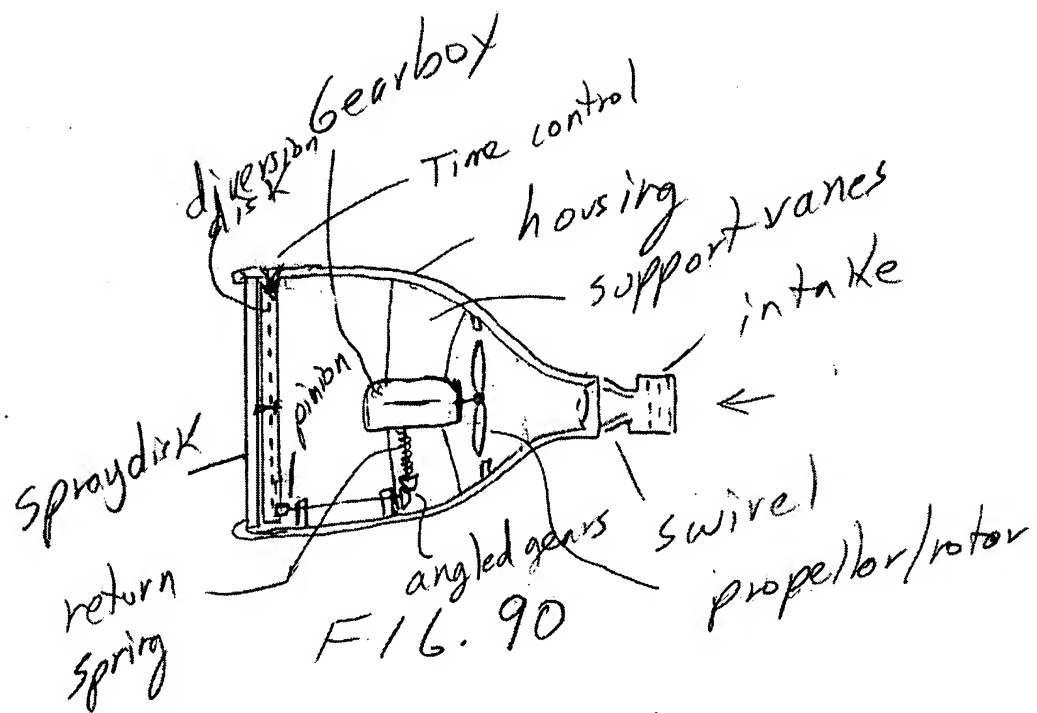 Gearbox
diversion
disk
Time control
housing
support vanes
intake
pinion
spraydisk
return
spring
angled gears
swirel
propellor/rotor
FIG. 90